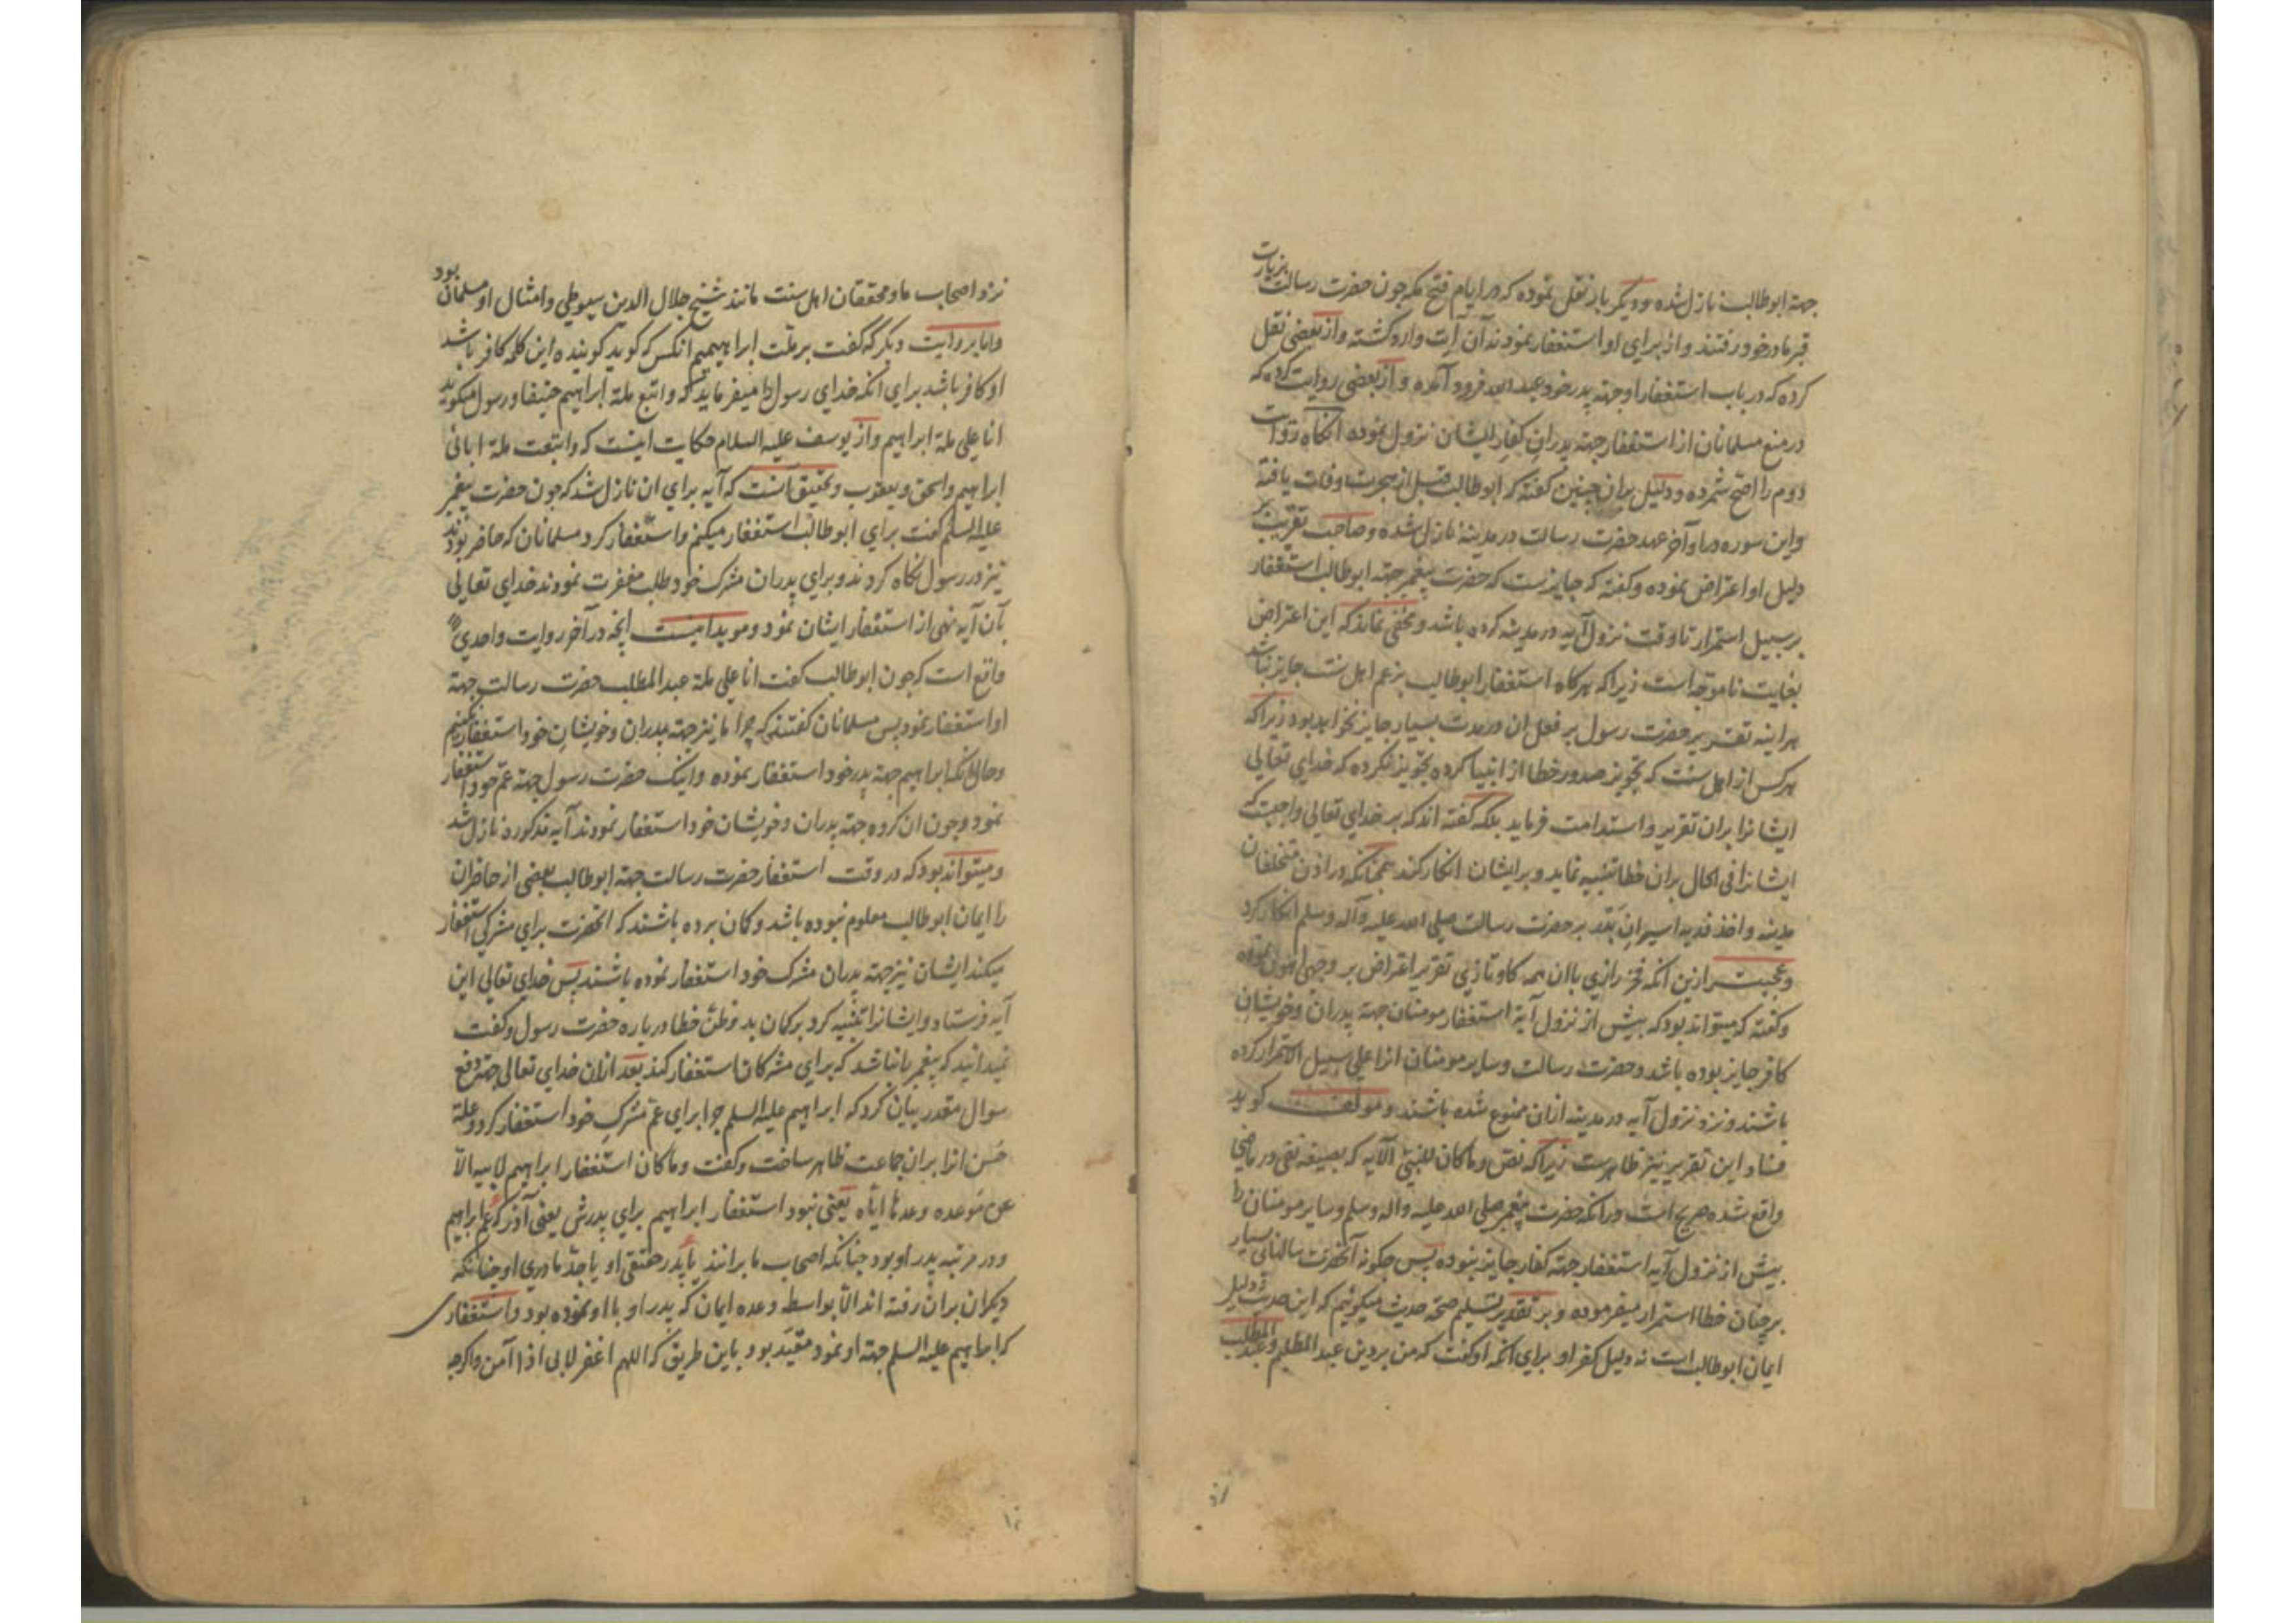 جهة ابوطالب نازل شده و دیگر بار نقل نموده که در ایام فتح مکه چون حضرت رسالت بزیارت
قبر مادر خود رفتند و از برای او استغفار نمودند آن آیت وارد گشته و از بعضی نقل
کرده که در باب استغفار او جهة پدر خود عبد الله فرود آمده و از بعضی روایت کرده که
در منع مسلمانان از استغفار جهة پدران کفار ایشان نزول نموده آنگاه روایت
دوم را اصح شمرده و دلیل بران چنین گفته که ابوطالب قبل از هجرت وفات یافته
و این سوره در اواخر عهد حضرت رسالت در مدینه نازل شده و صاحب تقریب بر
دلیل او اعتراض نموده و گفته که جایزست که حضرت پیغمبر جهة ابوطالب استغفار
بر سبیل استمرار تا وقت نزول آیه در مدینه کرده باشد و مخفی نماند که این اعتراض
بغایت ناموجه است زیرا که هرگاه استغفار ابوطالب بزعم اهل سنت جایز نباشد
هراینه تقریر حضرت رسول بر فعل ان در مدت بسیار جایز نخواهد بود زیرا که
هر کس از اهل سنت که تجویز صدور خطا از انبیا کرده تجویز نکرده که خدای تعالی
ایشانرا بران تقریر و استدامت فرماید بلکه گفته اند که بر خدای تعالی واجبست که
ایشانرا فی الحال بران خطا تنبیه نماید و بر ایشان انکار کند همچنانکه در اذن متخلفان
مدینه و اخذ فدیه اسیران بدر بر حضرت رسالت صلی الله علیه وآله وسلم انکار کرد
و عجبست ازین انکه فخر رازی با ان همه کاو تازی تقریر اعتراض بر وجهی افتن نموده
و گفته که میتواند بود که پیش از نزول آیة استغفار مومنان جهة پدران و خویشان
کافر جایز بوده باشد و حضرت رسالت و سایر مومنان انرا علی سبیل الاستمرار کرده
باشند و نزد نزول آیه در مدینه ازان ممنوع شده باشند و مولف گوید
فساد این تقریر نیز ظاهرست زیرا که نص و ما کان للنبی الآیه که بصیغه نفی در ماضی
واقع شده صریح است در انکه حضرت پیغمبر صلی الله علیه واله وسلم و سایر مومنان را
پیش از نزول آیه استغفار جهة کفار جایز نبوده پس چگونه آنحضرت سالهای بسیار
بر چنان خطا استمرار میفرموده و بر تقدیر تسلیم صحة حدیث میگوئیم که این حدیث دلیل
ایمان ابوطالب است نه دلیل کفر او برای انکه او گفت که من بر دین عبد المطلبم و عبد المطلب
نزد اصحاب ما و محققان اهل سنت مانند شیخ جلال الدین سیوطی و امثال او مسلمان بود
و اما بروایت دیگر که گفت بر ملت ابراهیمیم انکس که گوید گوینده این کلمه کافر باشد
او کافر باشد برای انکه خدای رسول را میفرماید که و اتبع ملة ابراهیم حنیفا و رسول میگوید
انا علی ملة ابراهیم و از یوسف علیه السلام حکایت اینست که واتبعت ملة ابائی
ابراهیم واسحق ویعقوب و تحقیق آنست که آیه برای ان نازل شد که چون حضرت پیغمبر
علیه السلم گفت برای ابوطالب استغفار میکنم و استغفار کرد مسلمانان که حاضر بودند
نیز در رسول نگاه کردند و برای پدران مشرک خود طلب مغفرت نمودند خدای تعالی
بآن آیه نهی از استغفار ایشان نمود و موید اینست انچه در آخر روایت واحدی
واقع است که چون ابوطالب گفت انا علی ملة عبد المطلب حضرت رسالت جهة
او استغفار نمود پس مسلمانان گفتند که چرا ما نیز جهة پدران و خویشان خود استغفار نکنیم
و حال انکه ابراهیم جهة پدر خود استغفار نموده و اینک حضرت رسول جهة عم خود استغفار
نمود و چون ان گروه جهة پدران و خویشان خود استغفار نمودند آیه مذکوره نازل شد
و میتواند بود که در وقت استغفار حضرت رسالت جهة ابوطالب بعضی از حاضران
را ایمان ابوطالب معلوم نبوده باشد و گمان برده باشند که انحضرت برای مشرکی استغفار
میکند ایشان نیز جهة پدران مشرک خود استغفار نموده باشند پس خدای تعالی این
آیه فرستاد و ایشانرا تنبیه کرد بر گمان بد و ظن خطا در باره حضرت رسول و گفت
نمیدانید که پیغمبر ما نباشد که برای مشرکان استغفار کند بعد ازان خدای تعالی جهة دفع
سوال مقدر بیان کرد که ابراهیم علیه السلم چرا برای عم مشرک خود استغفار کرد و علة
حسن انرا بران جماعت ظاهر ساخت و گفت وما کان استغفار ابراهیم لابیه الا
عن موعده وعدها ایاه یعنی نبود استغفار ابراهیم برای پدرش یعنی آذر که عم ابراهیم
و در مرتبه پدر او بود چنانکه اصحاب ما برانند یا پدر حقیقی او یا جد مادری او چنانکه
دیگران بران رفته اند الا بواسطه وعده ایمان که پدر او با او نموده بود و استغفاری
که ابراهیم علیه السلم جهة او نمود مقید بود باین طریق که اللهم اغفر لابی اذا آمن و اگرچه